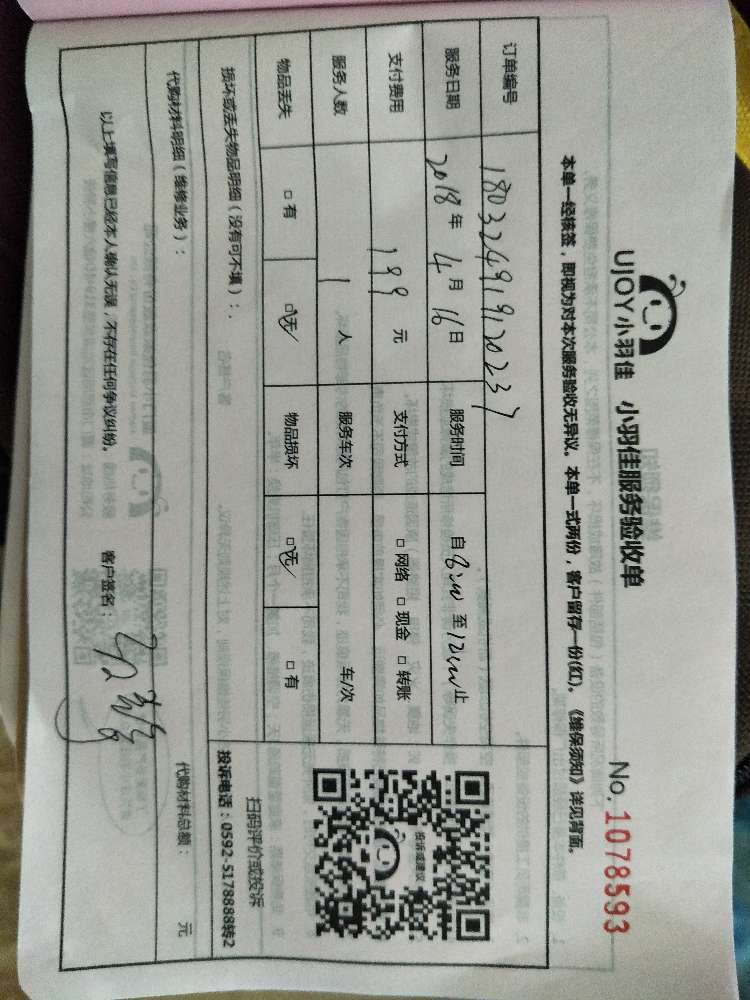 UJOY小羽佳 小羽佳服务验收单 No. 1078593
本单一经核签，即视为对本次服务验收无异议。本单一式两份，客户留存一份(红)。《维保须知》详见背面。
订单编号 180324919120237
服务日期 2018年4月16日 服务时间 自8:00至12:00止
支付费用 199元 支付方式 □网络 □现金 □转账
服务人数 1人 服务车次 车/次
物品丢失 □有 ☑无 物品损坏 ☑无 □有
损坏或丢失物品明细（没有可不填）：
代购材料明细（维修业务）： 代购材料总额： 元
以上填写信息已经本人确认无误，不存在任何争议纠纷。 客户签名：
投诉或建议
扫码评价或投诉
投诉电话：0592-5178888转2